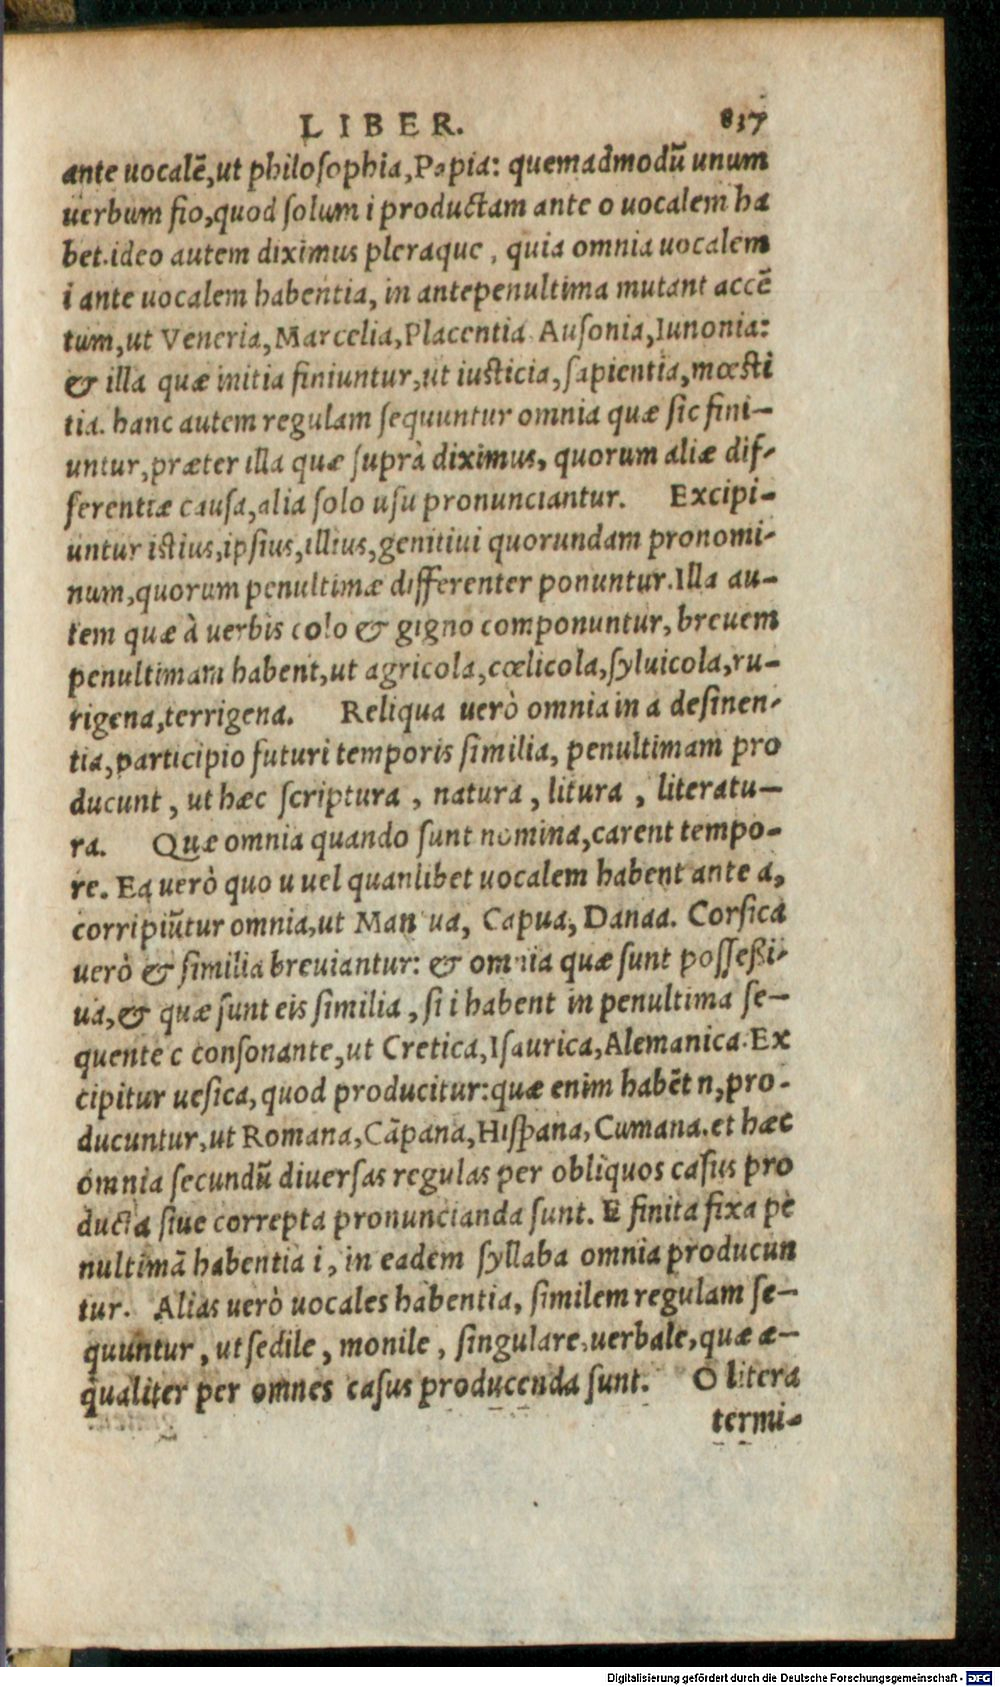 LIBER. 837
ante uocalẽ, ut philosophia, Papia: quemadmodũ unum
uerbum fio, quod solum i productam ante o uocalem ha
bet. ideo autem diximus pleraque, quia omnia uocalem
i ante uocalem habentia, in antepenultima mutant accẽ
tum, ut Veneria, Marcelia, Placentia Ausonia, Iunonia:
& illa quæ initia finiuntur, ut iusticia, sapientia, mœsti
tia. hanc autem regulam sequuntur omnia quæ sic fini-
untur, præter illa quæ suprà diximus, quorum aliæ dif-
ferentiæ causa, alia solo usu pronunciantur. Excipi-
untur istius, ipsius, illius, genitiui quorundam pronomi-
num, quorum penultimæ differenter ponuntur. Illa au-
tem quæ à uerbis colo & gigno componuntur, breuem
penultimam habent, ut agricola, cœlicola, syluicola, ru-
rigena, terrigena. Reliqua uerò omnia in a desinen-
tia, participio futuri temporis similia, penultimam pro
ducunt, ut hæc scriptura, natura, litura, literatu-
ra. Quæ omnia quando sunt nomina, carent tempo-
re. Ea uerò quo u uel quanlibet uocalem habent ante a,
corripiũtur omnia, ut Man ua, Capua, Danaa. Corsica
uerò & similia breuiantur: & omnia quæ sunt possessi-
ua, & quæ sunt eis similia, si i habent in penultima se-
quente c consonante, ut Cretica, Isaurica, Alemanica. Ex
cipitur uesica, quod producitur: quæ enim habẽt n, pro-
ducuntur, ut Romana, Cãpana, Hispana, Cumana. et hæc
omnia secundũ diuersas regulas per obliquos casus pro
ducta siue correpta pronuncianda sunt. E finita fixa pe
nultimã habentia i, in eadem syllaba omnia producun
tur. Alias uerò uocales habentia, similem regulam se-
quuntur, ut sedile, monile, singulare, uerbale, quæ æ-
qualiter per omnes casus producenda sunt. O litera
termi-
Digitalisierung gefördert durch die Deutsche Forschungsgemeinschaft - DFG